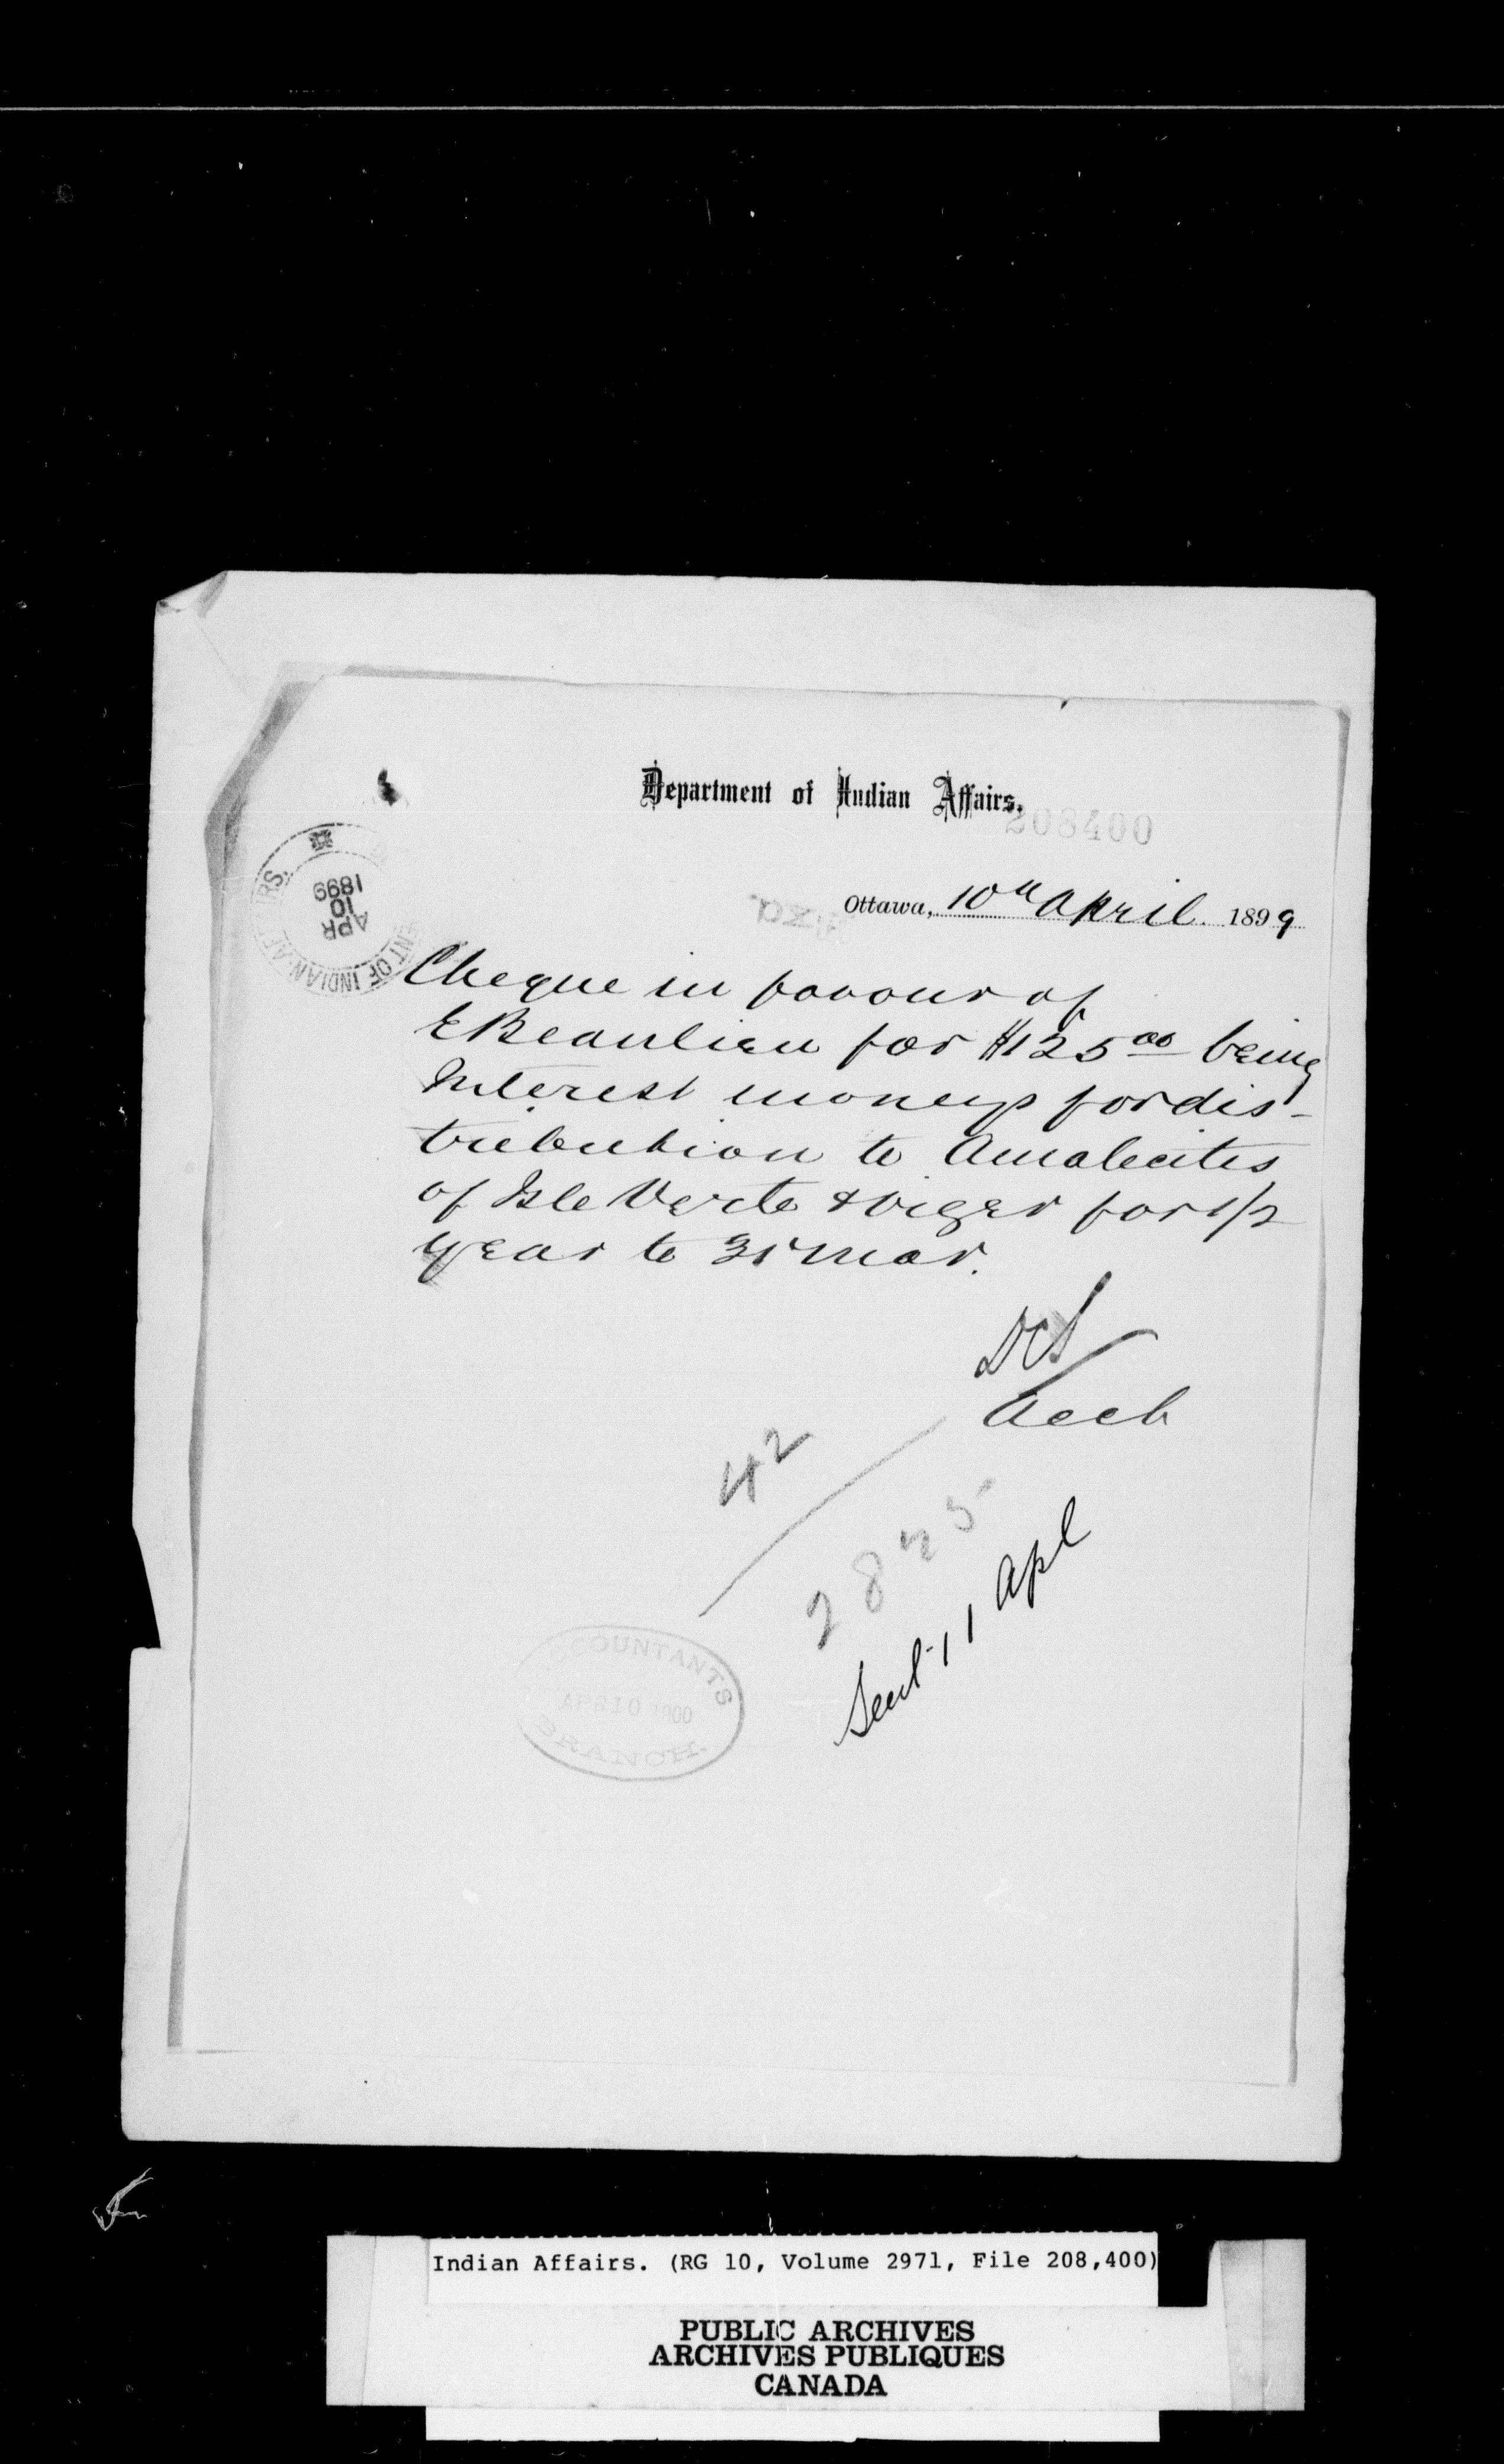 Department of Indian Affairs.
208400
Ottawa, 10th April 1899
APR
10
1899
ENT OF INDIAN AFF RS.
Cheque in favour of
E Beaulieu for $125 00 being
Interest moneys for dis-
tribution to Amalecites
of Isle Verte & Viger for 1/2
year to 31 Mar.
DCS
Acct
42
2825
Sent 11 Apl
COUNTANTS
APR 10
BRANCH.
Indian Affairs. (RG 10, Volume 2971, File 208,400)
PUBLIC ARCHIVES
ARCHIVES PUBLIQUES
CANADA